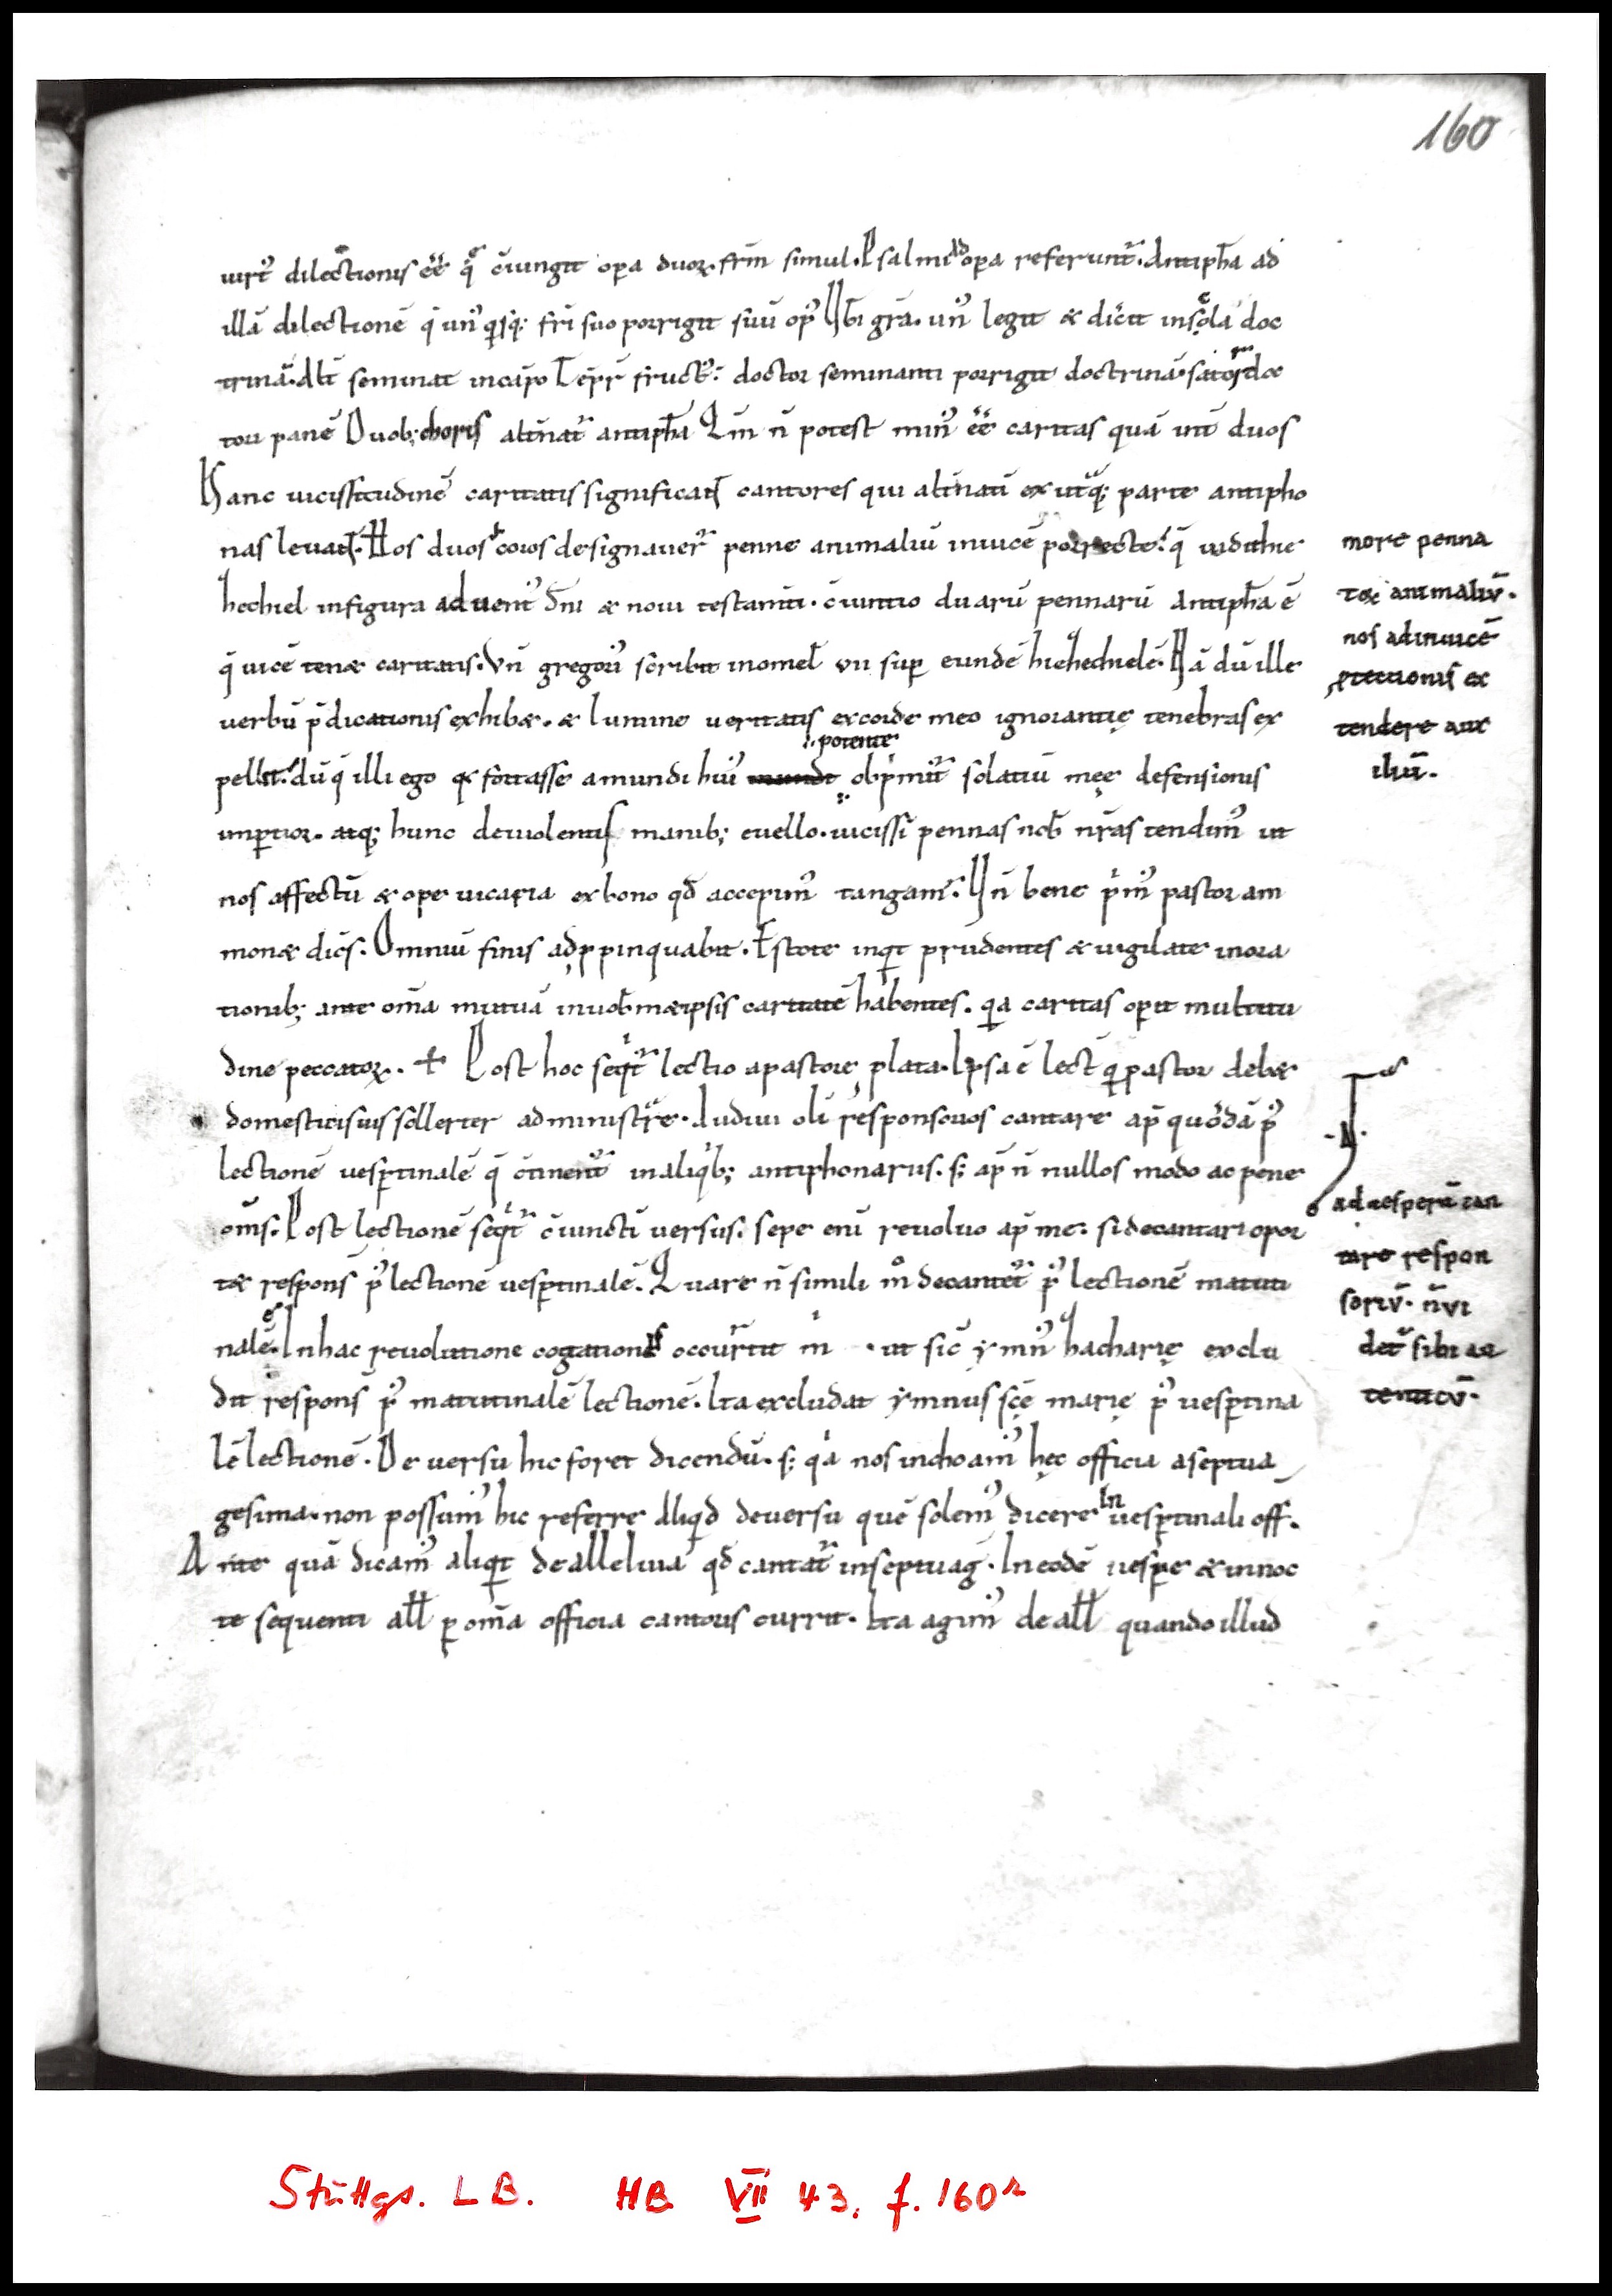 160
uirt᾽ dilectionis ēē q̄ c̄iungit opa duoꝝ. frm̄ simul. Psalmi ad opa referunt᾽. Antiph̄a ad
illā dilectionē q̄ un᾽ q̇sq; fri suo porrigit suū op᾽ Vbi gr̄a. un᾽ legit & dicit in scola doc
trinā. Alt̄ seminat in cāpo doctor seminanti porrigit doctrinā. sator doc
tori panē Duob; choris alt̄nat᾽ antiph̄a Q̄m n̄ potest min᾽ ēē caritas quā int̄ duos
Hanc uicissitudinē caritatis significant cantores qui alt̄natī ex utq; parte antipho
nas leuant. Hos duos coros designauer̄ penne animaliū inuicē porrecte. q̄ uidit hie
hechiel in figura aduent᾽ dn̄i & noui testam̄ti. c̄iuntio duarū pennarū Antiph̄a ē
q̄ uicē ten& caritatis. Vn̄ gregori᾽ scribit in omel̄ vii sup eundē hiehechielē. Nā dū ille
uerbū p̄dicationis exhib&. & lumine ueritatis ex corde meo ignorantię tenebras ex
pellit. dū q̄ illi ego q̄ fortasse a mundi hui᾽ mundi potente obp̄mit᾽ solatiū męe defensionis
inptior. atq; hunc de uiolentis manib; euello. uicissī pennas nob̄ nr̄as tendim᾽ ut
nos affectū & ope uicaria ex bono qd̄ accepim᾽ tangam᾽. Vn̄ bene p̄m᾽ pastor am
mon& dic̄s. Omniū finis adppinquabit. Estote inqt prudentes & uigilate in ora
tionib; ante om̄a mutuā in uob̄m&ipsis caritatē habentes. q̄a caritas operit multitu
dinē peccatoꝝ. + Post hoc seqt᾽ lectio a pastore plata. Ipsa ē lect̄ q̄ pastor deb&
domesticis suis sollerter administrare. Audiui oli responsorios cantare ap̄ quosdā p᾽
lectionē uesptinalē q̄ c̄tinent᾽ in aliqb; antiphonarus. s; ap̄ n̄ nullos modo ac pene
om̄s. Post lectionē seqt᾽ c̄iuncti uersus. sepe eni reuoluo ap̄ me. si decantari opor
t& respons̄ p᾽ lectionē uesptinalē. Quare n̄ simili m̊ decantet᾽ p᾽ lectionē matuti
nalē. In hac reuolutione cogationis occurrit m̄ . ut sic̄ ymn᾽ hacharię exclu
dit respons̄ p᾽ matutinalē lectionē. Ita excludat ymnus sc̄ę marię p᾽ uesptina
lē lectionē. De uersu hic foret dicendū. s; q̄a nos inchoam᾽ hęc officia a septua
gesima. non possum᾽ hic referre aliqd de uersu quē solem᾽ dicere in uesptinali off.
Ante quā dicam᾽ aliqt de alleluia qd̄ cantat᾽ in septuag̅. In eodē uespe & in noc
te sequenti all̄ p om̄a officia cantoris currit. Ita agim᾽ de all̄ quando illud
more penna
toꝝ animaliū.
nos adinuicē
ptectionis ex
tendere aux
iliū.
ad uesperū can
tare respon
soriū. n̄ ui
det᾽ sibi au
tenticū.
Stuttgs. LB. HB VII 43, f. 160r